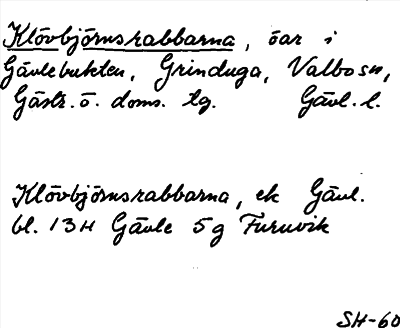 Klövbjörnsrabbarna, öar i
Gävlebukten, Grinduga, Valbo sn,
Gästr. ö. doms. tg. Gävl. l.
Klövbjörnsrabbarna, ek Gävl.
bl. 13H Gävle 5g Furuvik
SH-60